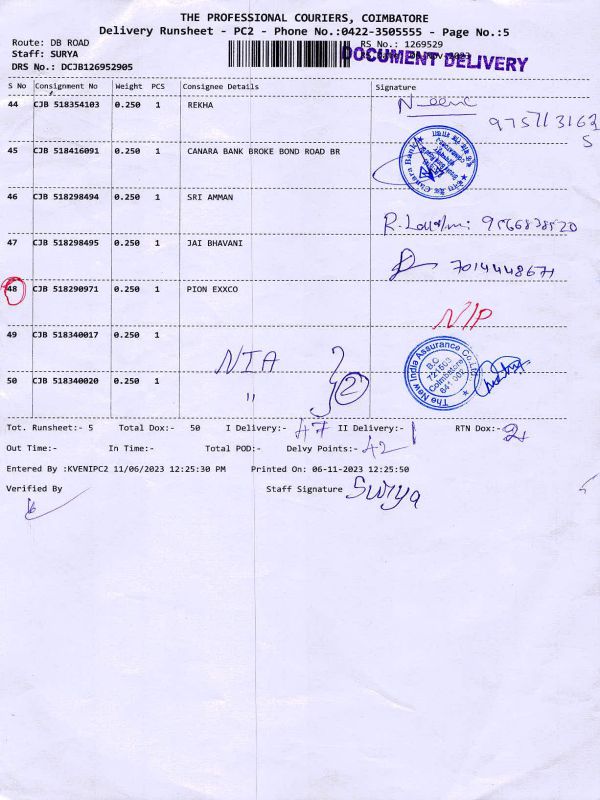 THE PROFESSIONAL COURIERS, COIMBATORE
Delivery Runsheet - PC2 - Phone No.:0422-3505555 - Page No.:5
Route: DB ROAD
RS No.: 1269529
Staff: SURYA
DOCUMENT DELIVERY
DRS No.: DCJB126952905
S No Consignment No Weight PCS Consignee Details Signature
44 CJB 518354103 0.250 1 REKHA
45 CJB 518416091 0.250 1 CANARA BANK BROKE BOND ROAD BR
Canara Bank
46 CJB 518298494 0.250 1 SRI AMMAN
9566838520
47 CJB 518298495 0.250 1 JAI BHAVANI
7014448671
48 CJB 518290971 0.250 1 PION EXXCO
N/P
49 CJB 518340017 0.250 1
NIA
The New India Assurance Co. Ltd.
B.O.
721503
Coimbatore
641 002
50 CJB 518340020 0.250 1
" 2
Tot. Runsheet:- 5 Total Dox:- 50 I Delivery:- 47 II Delivery:- 1 RTN Dox:- 2
Out Time:- In Time:- Total POD:- Delvy Points:- 42
Entered By :KVENIPC2 11/06/2023 12:25:30 PM Printed On: 06-11-2023 12:25:50
Verified By Staff Signature Surya